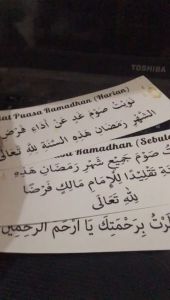 TOSHIBA
Puasa Ramadhan (Harian)
نَوَيْتُ صَوْمَ غَدٍ عَنْ أَدَاءِ فَرْضِ
الشَّهْرِ رَمَضَانِ هَذِهِ السَّنَةِ لِلّٰهِ تَعَالَى
Ramadhan (Sebula
صَوْمَ جَمِيْعِ شَهْرِ رَمَضَانِ هَذِهِ
تَقْلِيْدًا لِلْإِمَامِ مَالِكٍ فَرْضًا
لِلّٰهِ تَعَالَى
بِرَحْمَتِكَ يَا أَرْحَمَ الرَّحِمِيْنَ